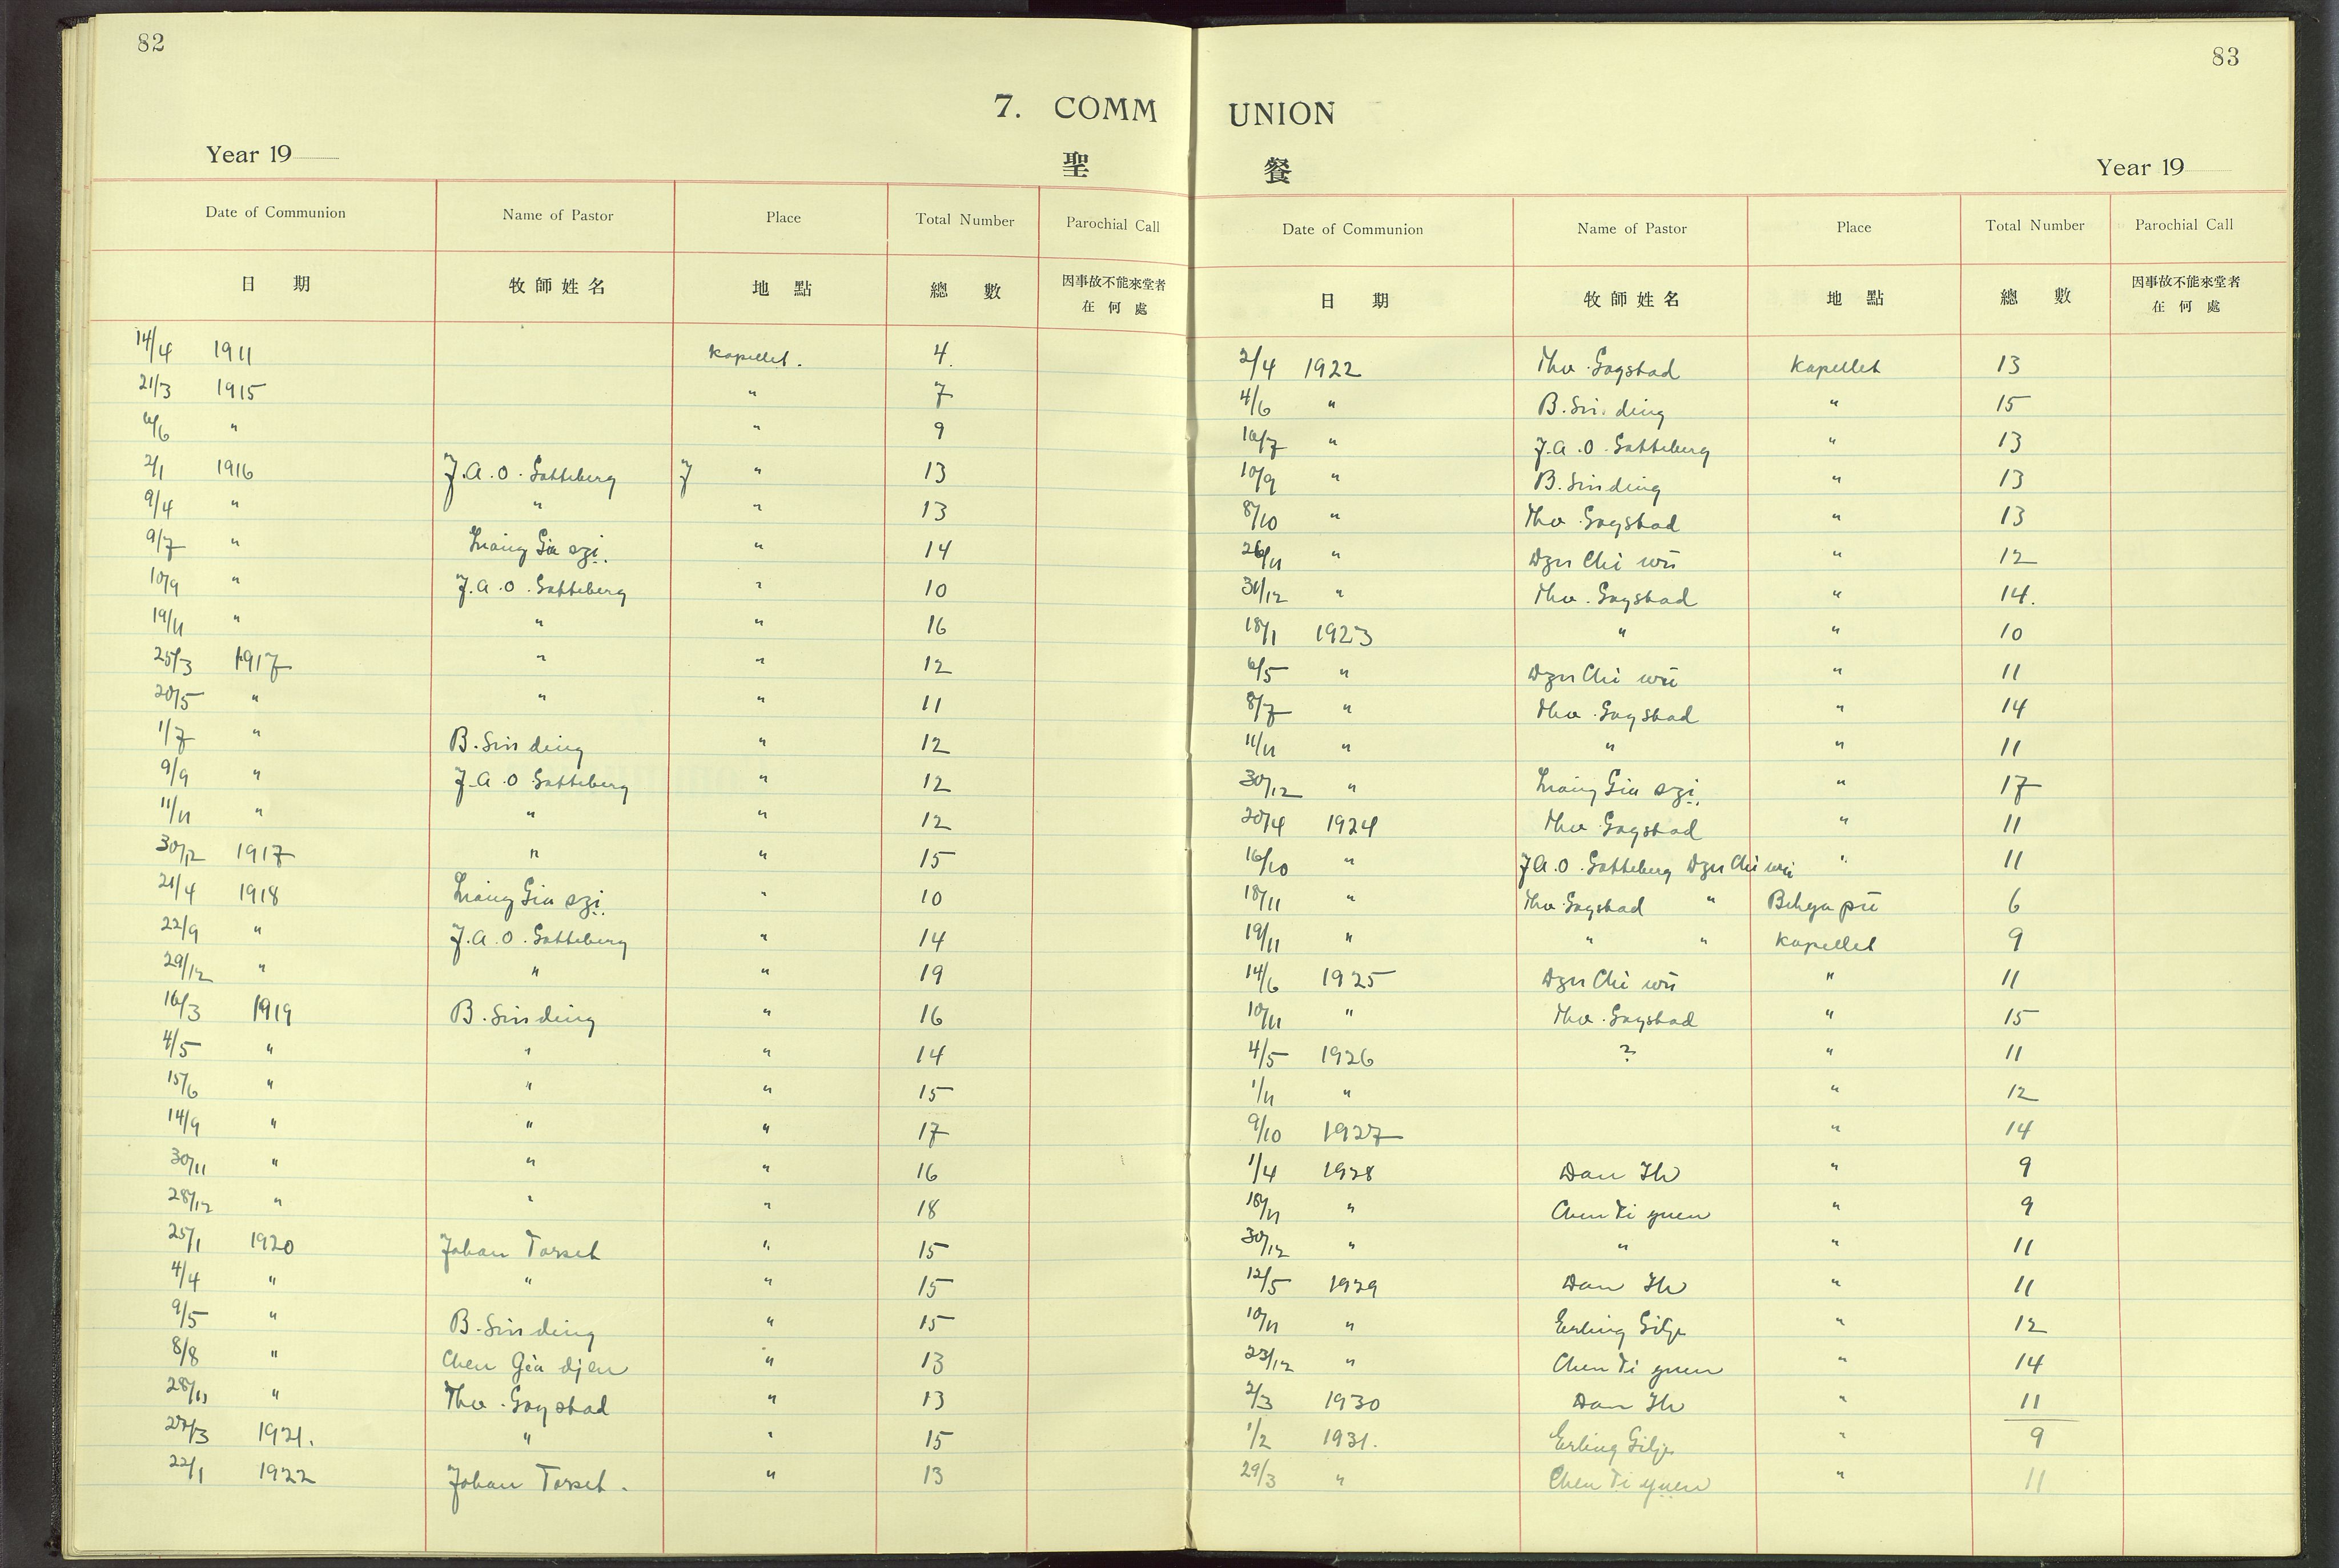 82
7. COMM
Year 19
聖
Date of Communion Name of Pastor Place Total Number Parochial Call
日 期 牧師姓名 地 點 總 數 因事故不能來堂者
在何處
14/4 1911 Kapellet. 4.
21/3 1915 " 7
6/6 " " 9
2/1 1916 J.A.O. Gotteberg J " 13
9/4 " " " 13
9/7 " Liang Gia szi. " 14
10/9 " J.A.O. Gotteberg " 10
19/11 " " " 16
25/3 1917 " " 12
20/5 " " " 11
1/7 " B. Sinding " 12
9/9 " J.A.O Gotteberg " 12
11/11 " " " 12
30/12 1917 " " 15
21/4 1918 Liang Gia szi. " 10
22/9 " J.A.O. Gotteberg " 14
29/12 " " " 19
16/3 1919 B. Sinding " 16
4/5 " " " 14
15/6 " " " 15
14/9 " " " 17
30/11 " " " 16
28/12 " " " 18
25/1 1920 Johan Torset " 15
4/4 " " " 15
9/5 " B. Sinding " 15
8/8 " Chen Gia djen " 13
28/11 " Tho. Gogstad " 13
27/3 1921. " " 15
22/1 1922 Johan Torset. " 13
83
UNION
餐
Year 19
Date of Communion Name of Pastor Place Total Number Parochial Call
日 期 牧師姓名 地 點 總 數 因事故不能來堂者
在何處
2/4 1922 Tho. Gogstad Kapellet 13
4/6 " B. Sinding " 15
16/7 " J.A.O. Gotteberg " 13
10/9 " B. Sinding " 13
8/10 " Tho. Gogstad " 13
26/11 " Dzu Chi wü " 12
31/12 " Tho. Gogstad " 14.
18/1 1923 " " 10
6/5 " Dzu Chi wü " 11
8/7 " Tho. Gogstad " 14
11/11 " " " 11
30/12 " Liang Gia szi. " 17
20/4 1924 Tho. Gogstad " 11
16/10 " J.A.O. Gotteberg Dzu Chi wü " 11
18/11 " Tho. Gogstad " 6
19/11 " " " Kapellet 9
14/6 1925 Dzu Chi wü " 11
10/11 " Tho. Gogstad " 15
4/5 1926 ? " 11
1/11 " " 12
9/10 1927 " 14
1/4 1928 Dan " 9
18/11 " Chen Ti yuen " 9
30/12 " " " 11
12/5 1929 Dan " 11
10/11 " Erling Gilje " 12
23/12 " Chen Ti yuen " 14
2/3 1930 Dan " 11
1/2 1931. Erling Gilje " 9
29/3 " Chen Ti yuen " 11